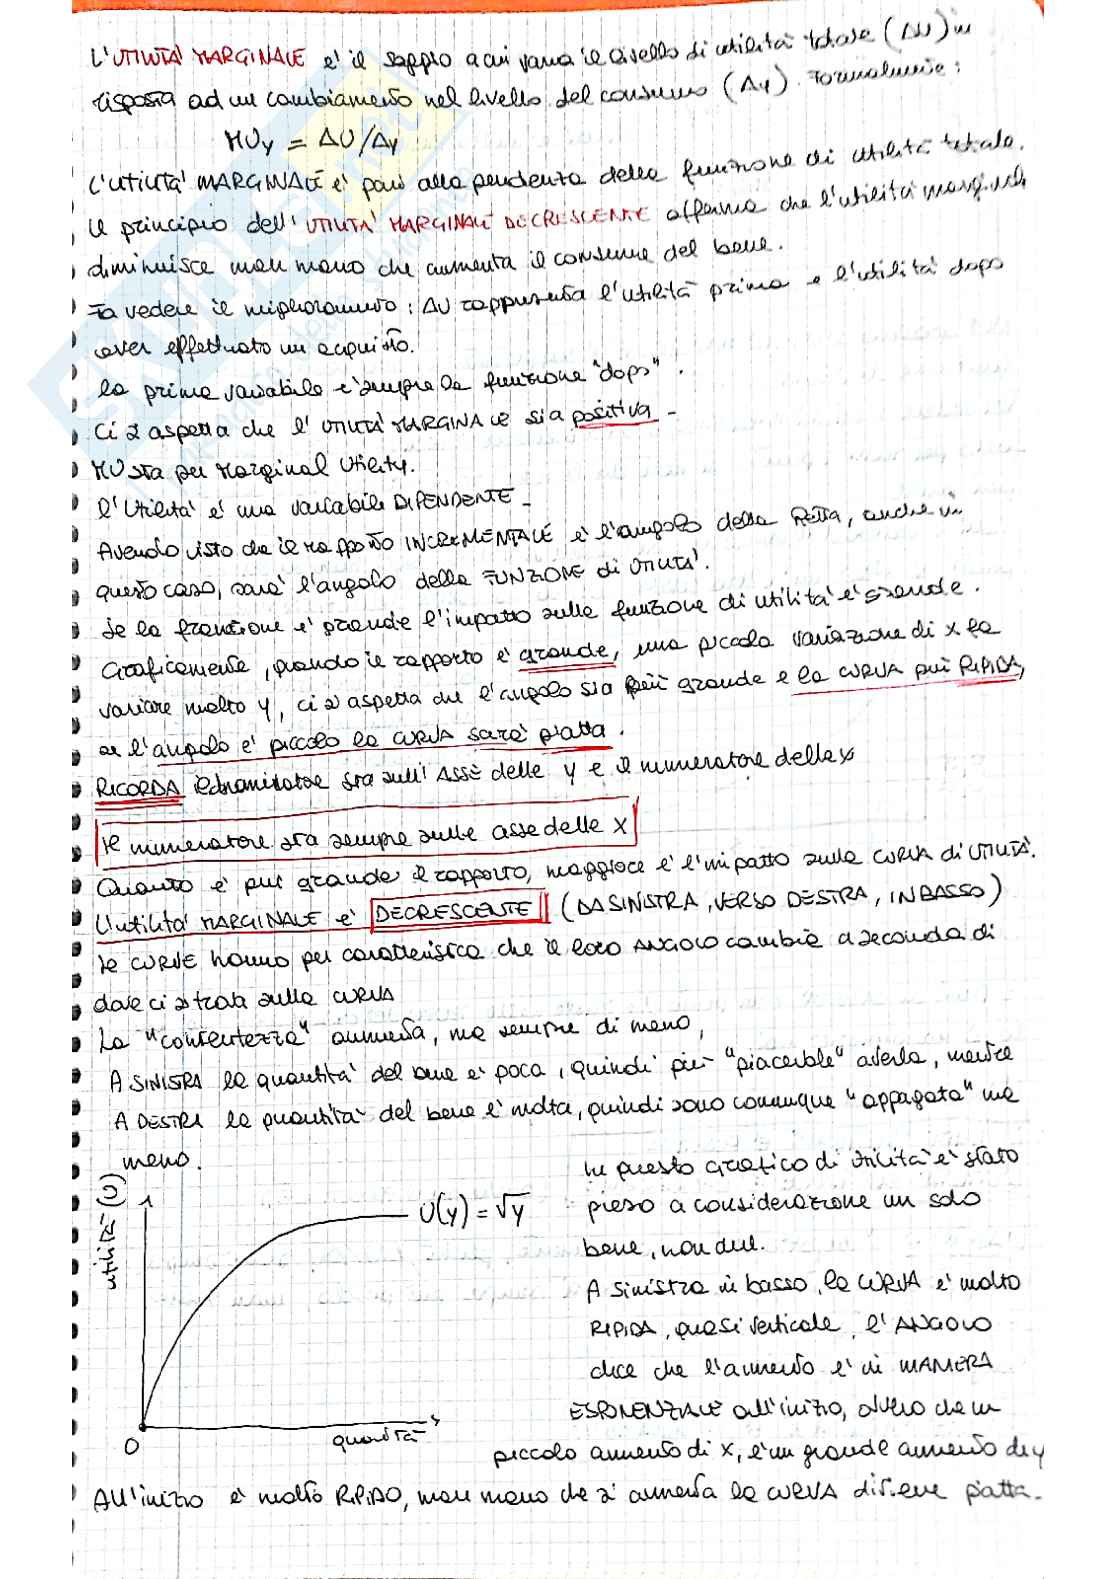 L'UTILITÀ MARGINALE e' il saggio a cui varia il livello di utilità totale (ΔU) in
risposta ad un cambiamento nel livello del consumo (Δy). Formalmente:
MUy = ΔU/Δy
L'UTILITÀ MARGINALE e' pari alla pendenza della funzione di utilità totale.
Il principio dell'UTILITÀ MARGINALE DECRESCENTE afferma che l'utilità marginale
diminuisce man mano che aumenta il consumo del bene.
Fa vedere il miglioramento: ΔU rappresenta l'utilità prima e l'utilità dopo
aver effettuato un acquisto.
la prima variabile e' sempre la funzione "dopo".
Ci si aspetta che l'UTILITÀ MARGINALE sia positiva -
MU sta per Marginal Utility.
l'Utilità e' una variabile DIPENDENTE -
Avendo visto che il rapporto INCREMENTALE e' l'angolo della Retta, anche in
questo caso, sarà l'angolo della FUNZIONE di UTILITÀ.
Se la frazione e' grande l'impatto sulla funzione di utilità e' grande.
Graficamente, quando il rapporto e' grande, una piccola variazione di x fa
variare molto y, ci si aspetta che l'angolo sia più grande e la CURVA più RIPIDA,
se l'angolo e' piccolo la CURVA sarà piatta.
RICORDA il denominatore sta sull'Asse delle y e il numeratore della x
Il numeratore sta sempre sulle asse delle X
Quanto e' più grande il rapporto, maggiore e' l'impatto sulla CURVA di UTILITÀ.
L'utilità MARGINALE e' DECRESCENTE (DA SINISTRA, VERSO DESTRA, IN BASSO)
Le CURVE hanno per caratteristica che il loro ANGOLO cambia a seconda di
dove ci si trova sulla CURVA
La "contentezza" aumenta, ma sempre di meno,
A SINISTRA la quantità del bene e' poca, quindi più "piacevole" averla, mentre
A DESTRA la quantità del bene e' molta, quindi sono comunque "appagata" ma
meno.
In questo grafico di Utilità e' stato
preso a considerazione un solo
bene, non due.
A sinistra in basso, la CURVA e' molto
RIPIDA, quasi verticale, l'ANGOLO
dice che l'aumento e' in MANIERA
ESPONENZIALE all'inizio, ovvero che un
piccolo aumento di x, e' un grande aumento di y
All'inizio e' molto RIPIDO, man mano che si aumenta la CURVA diviene piatta.
utilità (U)
U(y) = √y
0
quantità